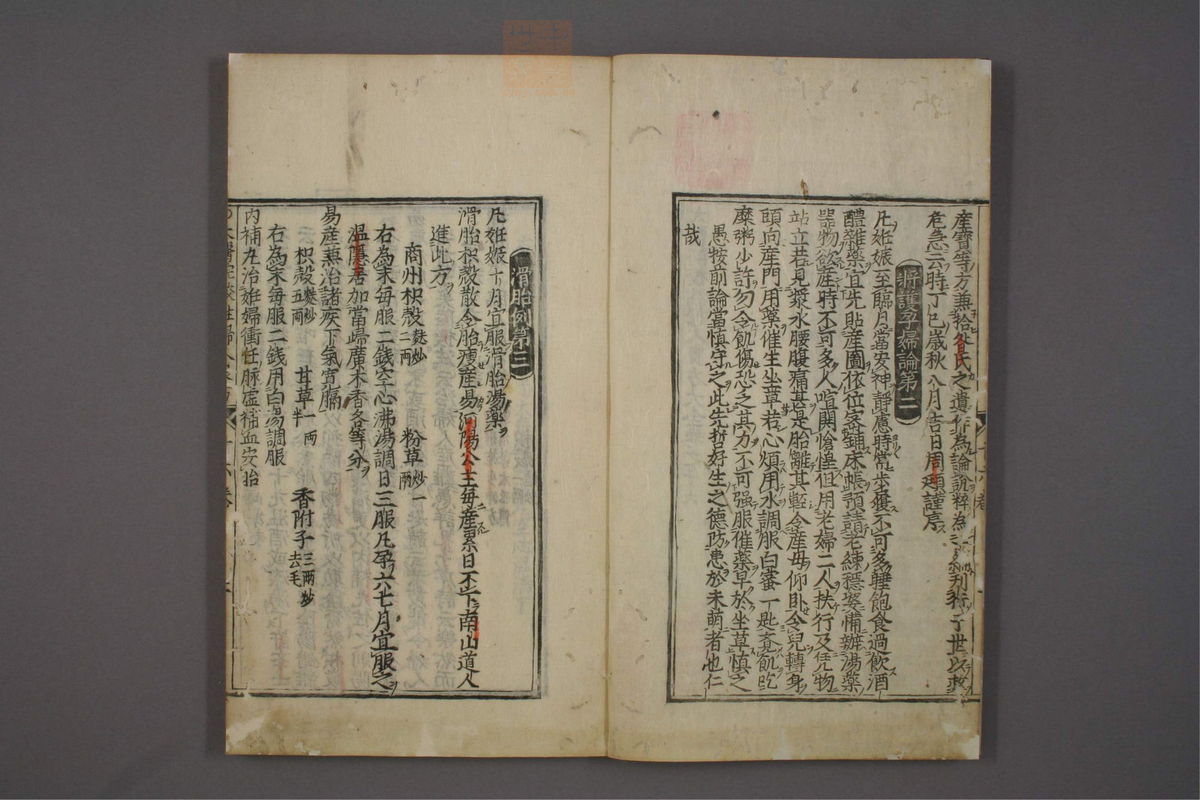 産寶等方兼拾李氏之遺行為論説粹為刋行于世以救
危急云時丁巳歲秋八月吉日周頲謹序
將護孕婦論第二
凡妊娠至臨月當安神靜慮時常步履不可多睡飽食過飲酒
醴雜藥宜先貼産圖依位密鋪床帳預請老練穩婆備辦湯藥
器物欲産時不可多人喧鬧愴惶但用老婦二人扶行及凭物
站立若見漿水腰腹痛甚是胎離其經令産母仰卧令兒轉身
頭向産門用藥催生坐草若心煩用水調服白蜜一匙覺飢吃
糜粥少許勿令飢傷恐乏其力不可强服催藥早於坐草慎之
愚按前論當慎守之此先哲好生之德防患於未萌者也仁
哉
滑胎例第三
凡妊娠十月宜服滑胎湯藥
滑胎枳殼散令胎瘦産易河陽公主每産累日不下南山道人
進此方
商州枳殼二兩麩炒 粉草炒一兩
右為末每服二錢空心沸湯調日三服凡孕六七月宜服之
温隱居加當歸廣木香各等分
易産兼治諸疾下氣寬膈
枳殼麩炒五兩 甘草一兩半 香附子三兩炒去毛
右為末每服二錢用白湯調服
内補丸治妊婦衝任脉虛補血安胎